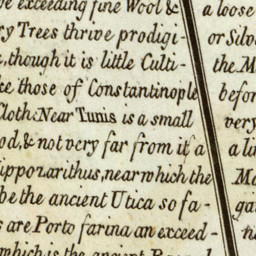 ve exceeding fine Wool &
ry Trees thrive prodigi-
, though it is little Culti-
ke those of Constantinople
Cloth: Near Tunis is a small
od, & not very far from it a
ipponarithus, near which the
be the ancient Utica so fa-
s are Porto farina an exceed-
which is the ancient
a loose
or Silv
the M
befor
very
a li
Ma
gai